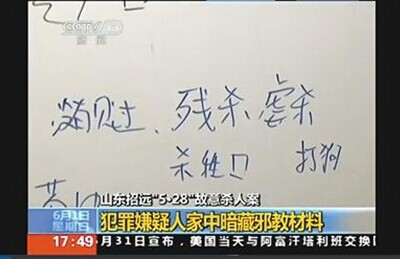 CCTV
新闻
残杀 虐杀
杀牲口 打狗
山东招远"5·28"故意杀人案
6月1日
星期日
犯罪嫌疑人家中暗藏邪教材料
17:49 月31日宣布，美国当天与阿富汗塔利班交换